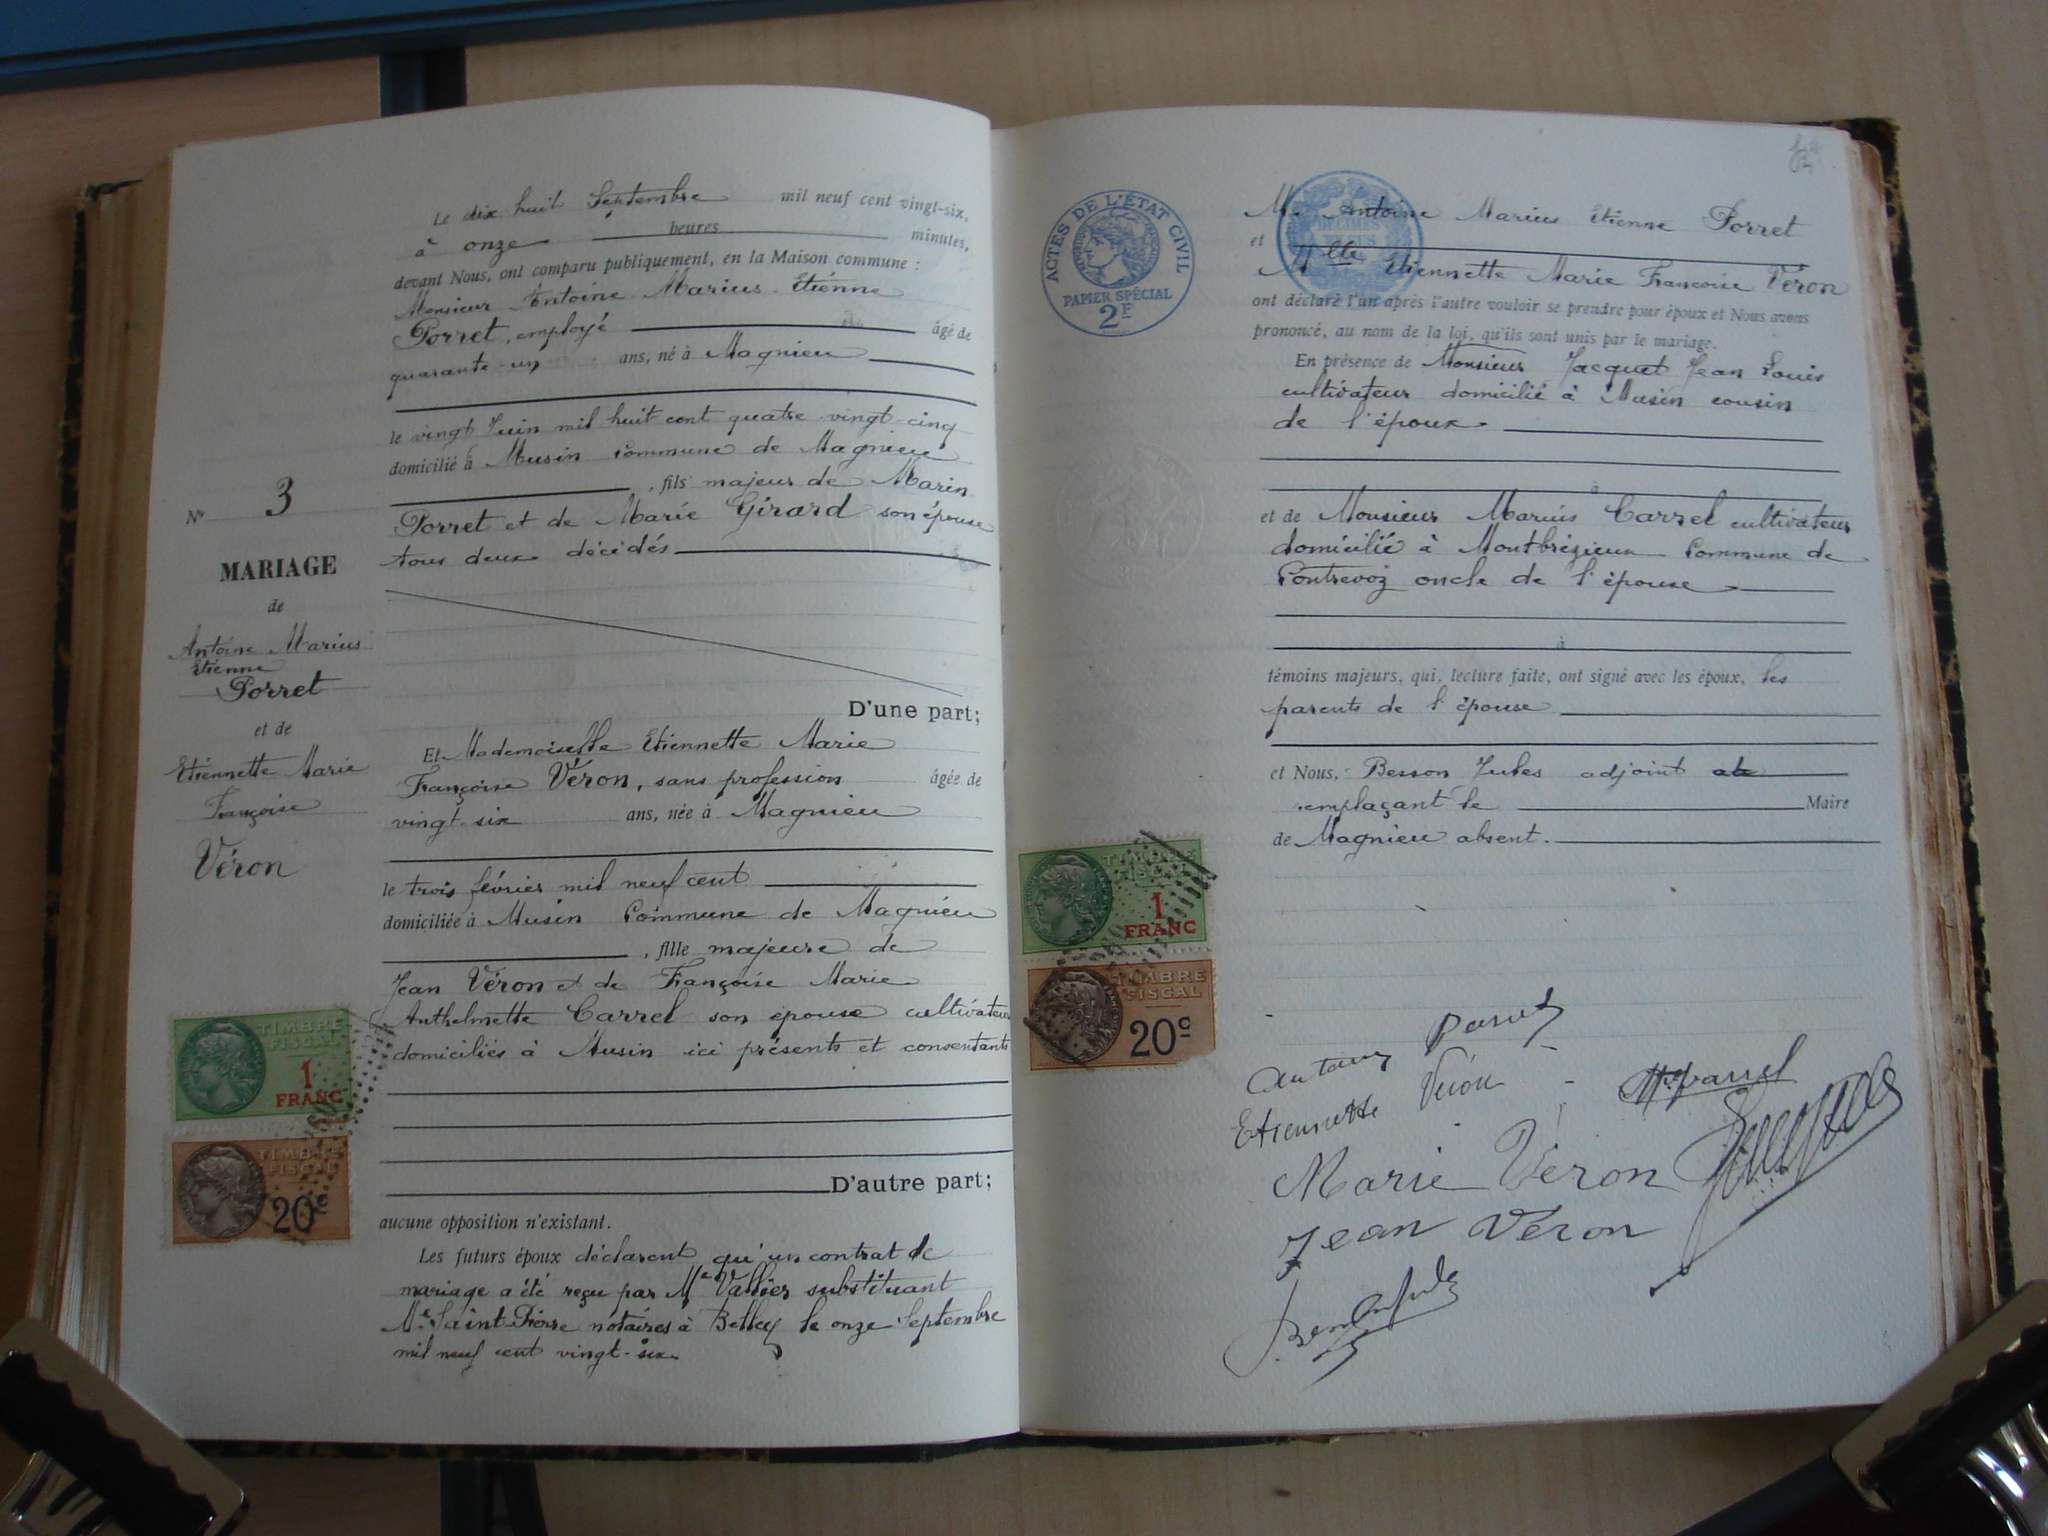 Le dix huit Septembre mil neuf cent vingt-six,
à onze heures minutes,
devant Nous, ont comparu publiquement, en la Maison commune :
Monsieur Antoine Marius Etienne
Porret, employé âgé de
quarante-un ans, né à Magnieu
le vingt Juin mil huit cent quatre-vingt-cinq
domicilié à Musin Commune de Magnieu
, fils majeur de Marin
Porret et de Marie Girard son épouse
tous deux décédés
N° 3
MARIAGE
de
Antoine Marius
Etienne
Porret
et de
Etiennette Marie
Françoise
Véron
D'une part;
Et Mademoiselle Etiennette Marie
Françoise Véron, sans profession âgée de
vingt-six ans, née à Magnieu
le trois février mil neuf cent
domiciliée à Musin Commune de Magnieu
, fille majeure de
Jean Véron et de Françoise Marie
Anthelmette Carrel son épouse cultivateurs
domiciliés à Musin ici présents et consentants
D'autre part;
aucune opposition n'existant.
Les futurs époux déclarent qu'un contrat de
mariage a été reçu par Me Vallier substituant
Me Saint-Pierre notaires à Belley le onze Septembre
mil neuf cent vingt-six
TIMBRE
FISCAL
1
FRANC
TIMBRE
FISCAL
20c
ACTES DE L'ÉTAT CIVIL
PAPIER SPÉCIAL
2F
DÉCIMES
M. Antoine Marius Etienne Porret
et Mlle Etiennette Marie Françoise Véron
ont déclaré l'un après l'autre vouloir se prendre pour époux et Nous avons
prononcé, au nom de la loi, qu'ils sont unis par le mariage.
En présence de Monsieur Jacquet Jean Louis
cultivateur domicilié à Musin cousin
de l'époux
à
et de Monsieur Marius Carrel cultivateur
domicilié à Montbrézieux Commune de
Contrevoz oncle de l'épouse
à
témoins majeurs, qui, lecture faite, ont signé avec les époux, les
parents de l'épouse
et Nous, Besson Jules adjoint
remplaçant le Maire
de Magnieu absent.
TIMBRE
FISCAL
1
FRANC
TIMBRE
FISCAL
20c
Etiennette Véron
Marie Véron
Jean Véron